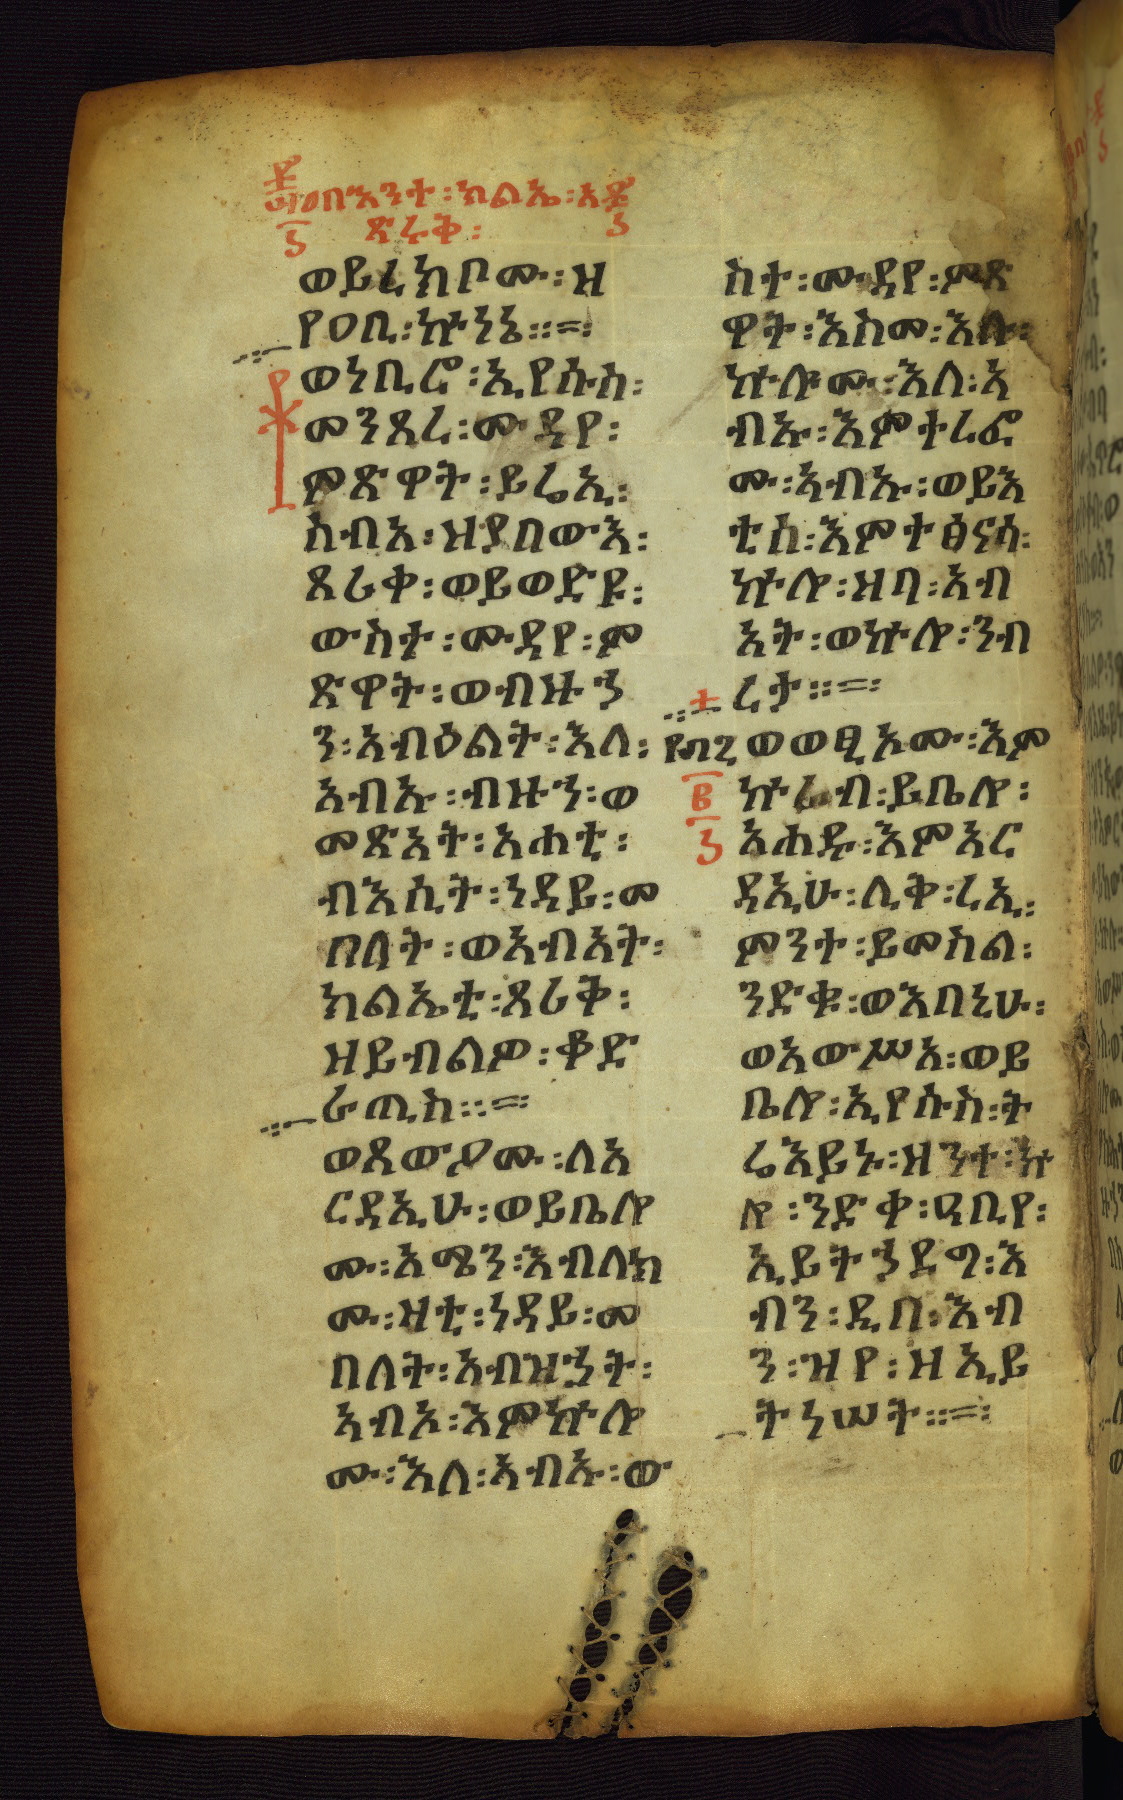 በእንተ፡ክልኤ፡
ጸሪቅ፡
ወይረክቦሙ፡ዘ
የዐቢ፡ኵነኔ።=፡
ወነቢሮ፡ኢየሱስ፡
መንጸረ፡ሙዳየ፡
ምጽዋት፡ይሬኢ፡
ሰብአ፡ዝያበውእ፡
ጸሪቀ፡ወይወድዩ፡
ውስተ፡ሙዳየ፡ም
ጽዋት፡ወብዙኃ
ን፡አብዕልት፡እለ፡
አብኡ፡ብዙኃ፡ወ
መጽአት፡አሐቲ፡
ብእሲት፡ነዳይ፡መ
በለት፡ወአብአት፡
ክልኤተ፡ጸሪቅ፡
ዘይብልዎ፡ቆድ
ራጢስ።=፡
ወጸውዖሙ፡ለአ
ርዳኢሁ፡ወይቤሎ
ሙ፡አማን፡እብለክ
ሙ፡ዛቲ፡ነዳይ፡መ
በለት፡አብዝኃት፡
አብኦ፡እምኵሎ
ሙ፡እለ፡አብኡ፡ው
ስተ፡ሙዳየ፡ምጽ
ዋት፡እስመ፡እሉ፡
ኵሎሙ፡እለ፡አ
ብኡ፡እምተረፎ
ሙ፡አብኡ፡ወይእ
ቲሰ፡እምተፅናሳ፡
ኵሎ፡ዘባ፡አብ
አት፡ወኵሎ፡ንብ
ረታ።=፡
ወወፂኦሙ፡እም
ኵራብ፡ይቤሎ፡
አሐዱ፡እምአር
ዳኢሁ፡ሊቅ፡ረኢ፡
ምንተ፡ይመስል፡
ንድቁ፡ወእበኒሁ፡
ወአውሥአ፡ወይ
ቤሎ፡ኢየሱስ፡ት
ሬእይኑ፡ዘንተ፡ኵ
ሎ፡ንድቀ፡ዐቢየ፡
ኢይትኃደግ፡እ
ብን፡ዲበ፡እብ
ን፡ዝየ፡ዘኢይ
ትነሠት።=፡